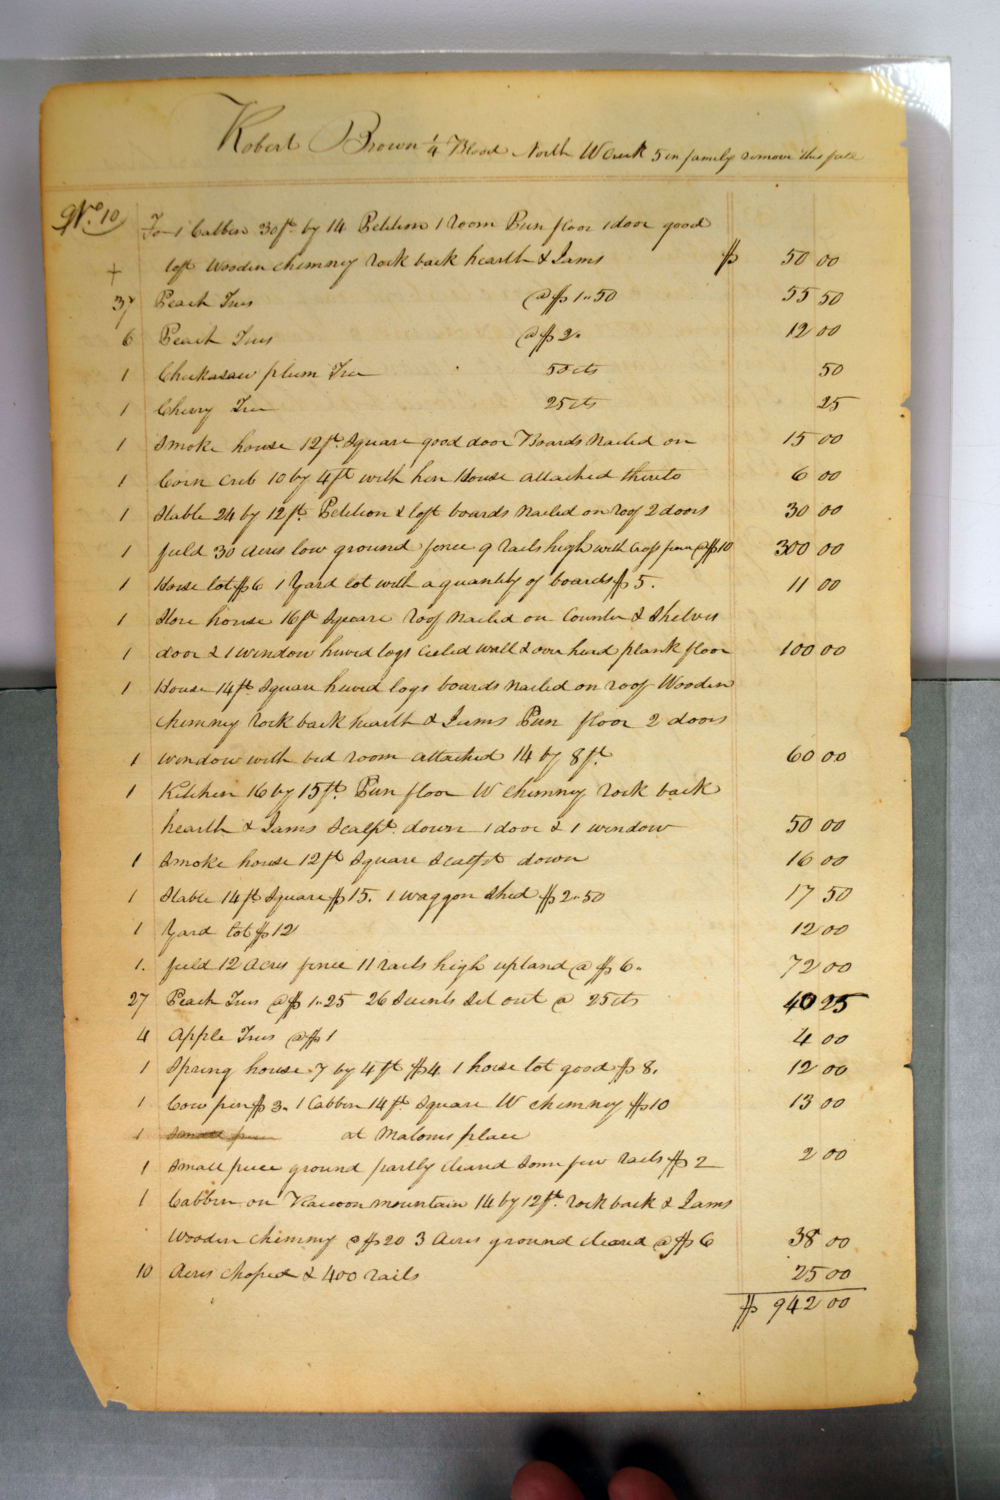 Robert Brown 1/4 Blood North W Creek 5 in family remove this fall
No. 10 For 1 Cabbin 30ft. by 14 Petition 1 room Pun floor 1 door good
+ loft wooden chimney rock back hearth & Jams $ 50 00
37 Peach Trees @ $1.50 55 50
6 Peach Trees @ $2. 12 00
1 Chickasaw plum Tree 50 cts 50
1 Cherry Tree 25 cts 25
1 Smoke house 12ft. Square good door Boards Nailed on 15 00
1 Corn crib 10 by 4 ft with hen House attached thereto 6 00
1 Stable 24 by 12ft. Petition & loft boards Nailed on roof 2 doors 30 00
1 field 30 acres low ground fence 9 rails high with Cross fence @ $10 300 00
1 Horse lot $6 1 Yard lot with a quantity of boards $5. 11 00
1 Store house 16ft Square roof Nailed on Counter & Shelves
1 door & 1 window hewed logs Cieled wall & over head plank floor 100 00
1 House 14ft Square hewed logs boards Nailed on roof Wooden
chimney rock back hearth & Jams Pun floor 2 doors
1 window with bed room attached 14 by 8ft. 60 00
1 Kitchen 16 by 15ft. Pun floor W chimney rock back
hearth & Jams Scalpt down 1 door & 1 window 50 00
1 Smoke house 12ft Square Scalpt down 16 00
1 Stable 14ft Square $15. 1 waggon Shed $2.50 17 50
1 Yard lot $12 12 00
1. field 12 Acres fence 11 rails high upland @ $6. 72 00
27 Peach Trees @ $1.25 26 Scients Set out @ 25 cts 40 25
4 Apple Trees @ $1 4 00
1 Spring house 7 by 4 ft $4 1 horse lot good $8. 12 00
1 Cow pen $3. 1 Cabbin 14ft Square W chimney $10 13 00
1 Small piece at Malones place
1 Small piece ground partly cleared Some few rails $2 2 00
1 Cabbin on Raccoon mountain 14 by 12ft. rock back & Jams
Wooden chimney @ $20 3 Acres ground cleared @ $6 38 00
10 Acres choped & 400 rails 25 00
$ 942 00